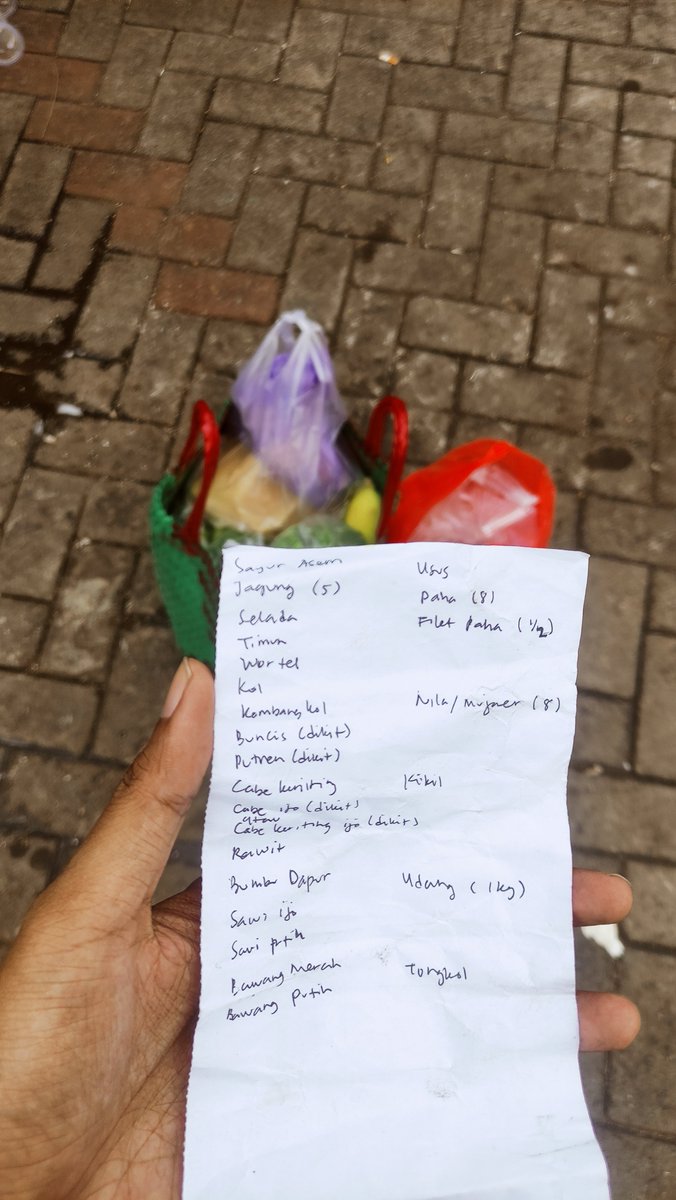 Sayur Asem
Jagung (5)
Selada
Timun
Wortel
Kol
Kembang kol
Buncis (dikit)
Putren (dikit)
Cabe keriting
Cabe ijo (dikit)
atau
Cabe keriting ijo (dikit)
Rawit
Bumbu Dapur
Sawi ijo
Sawi putih
Bawang Merah
Bawang putih
Usus
Paha (8)
Filet paha (1/2)
Nila/mujaer (8)
Kikil
Udang (1kg)
Tongkol